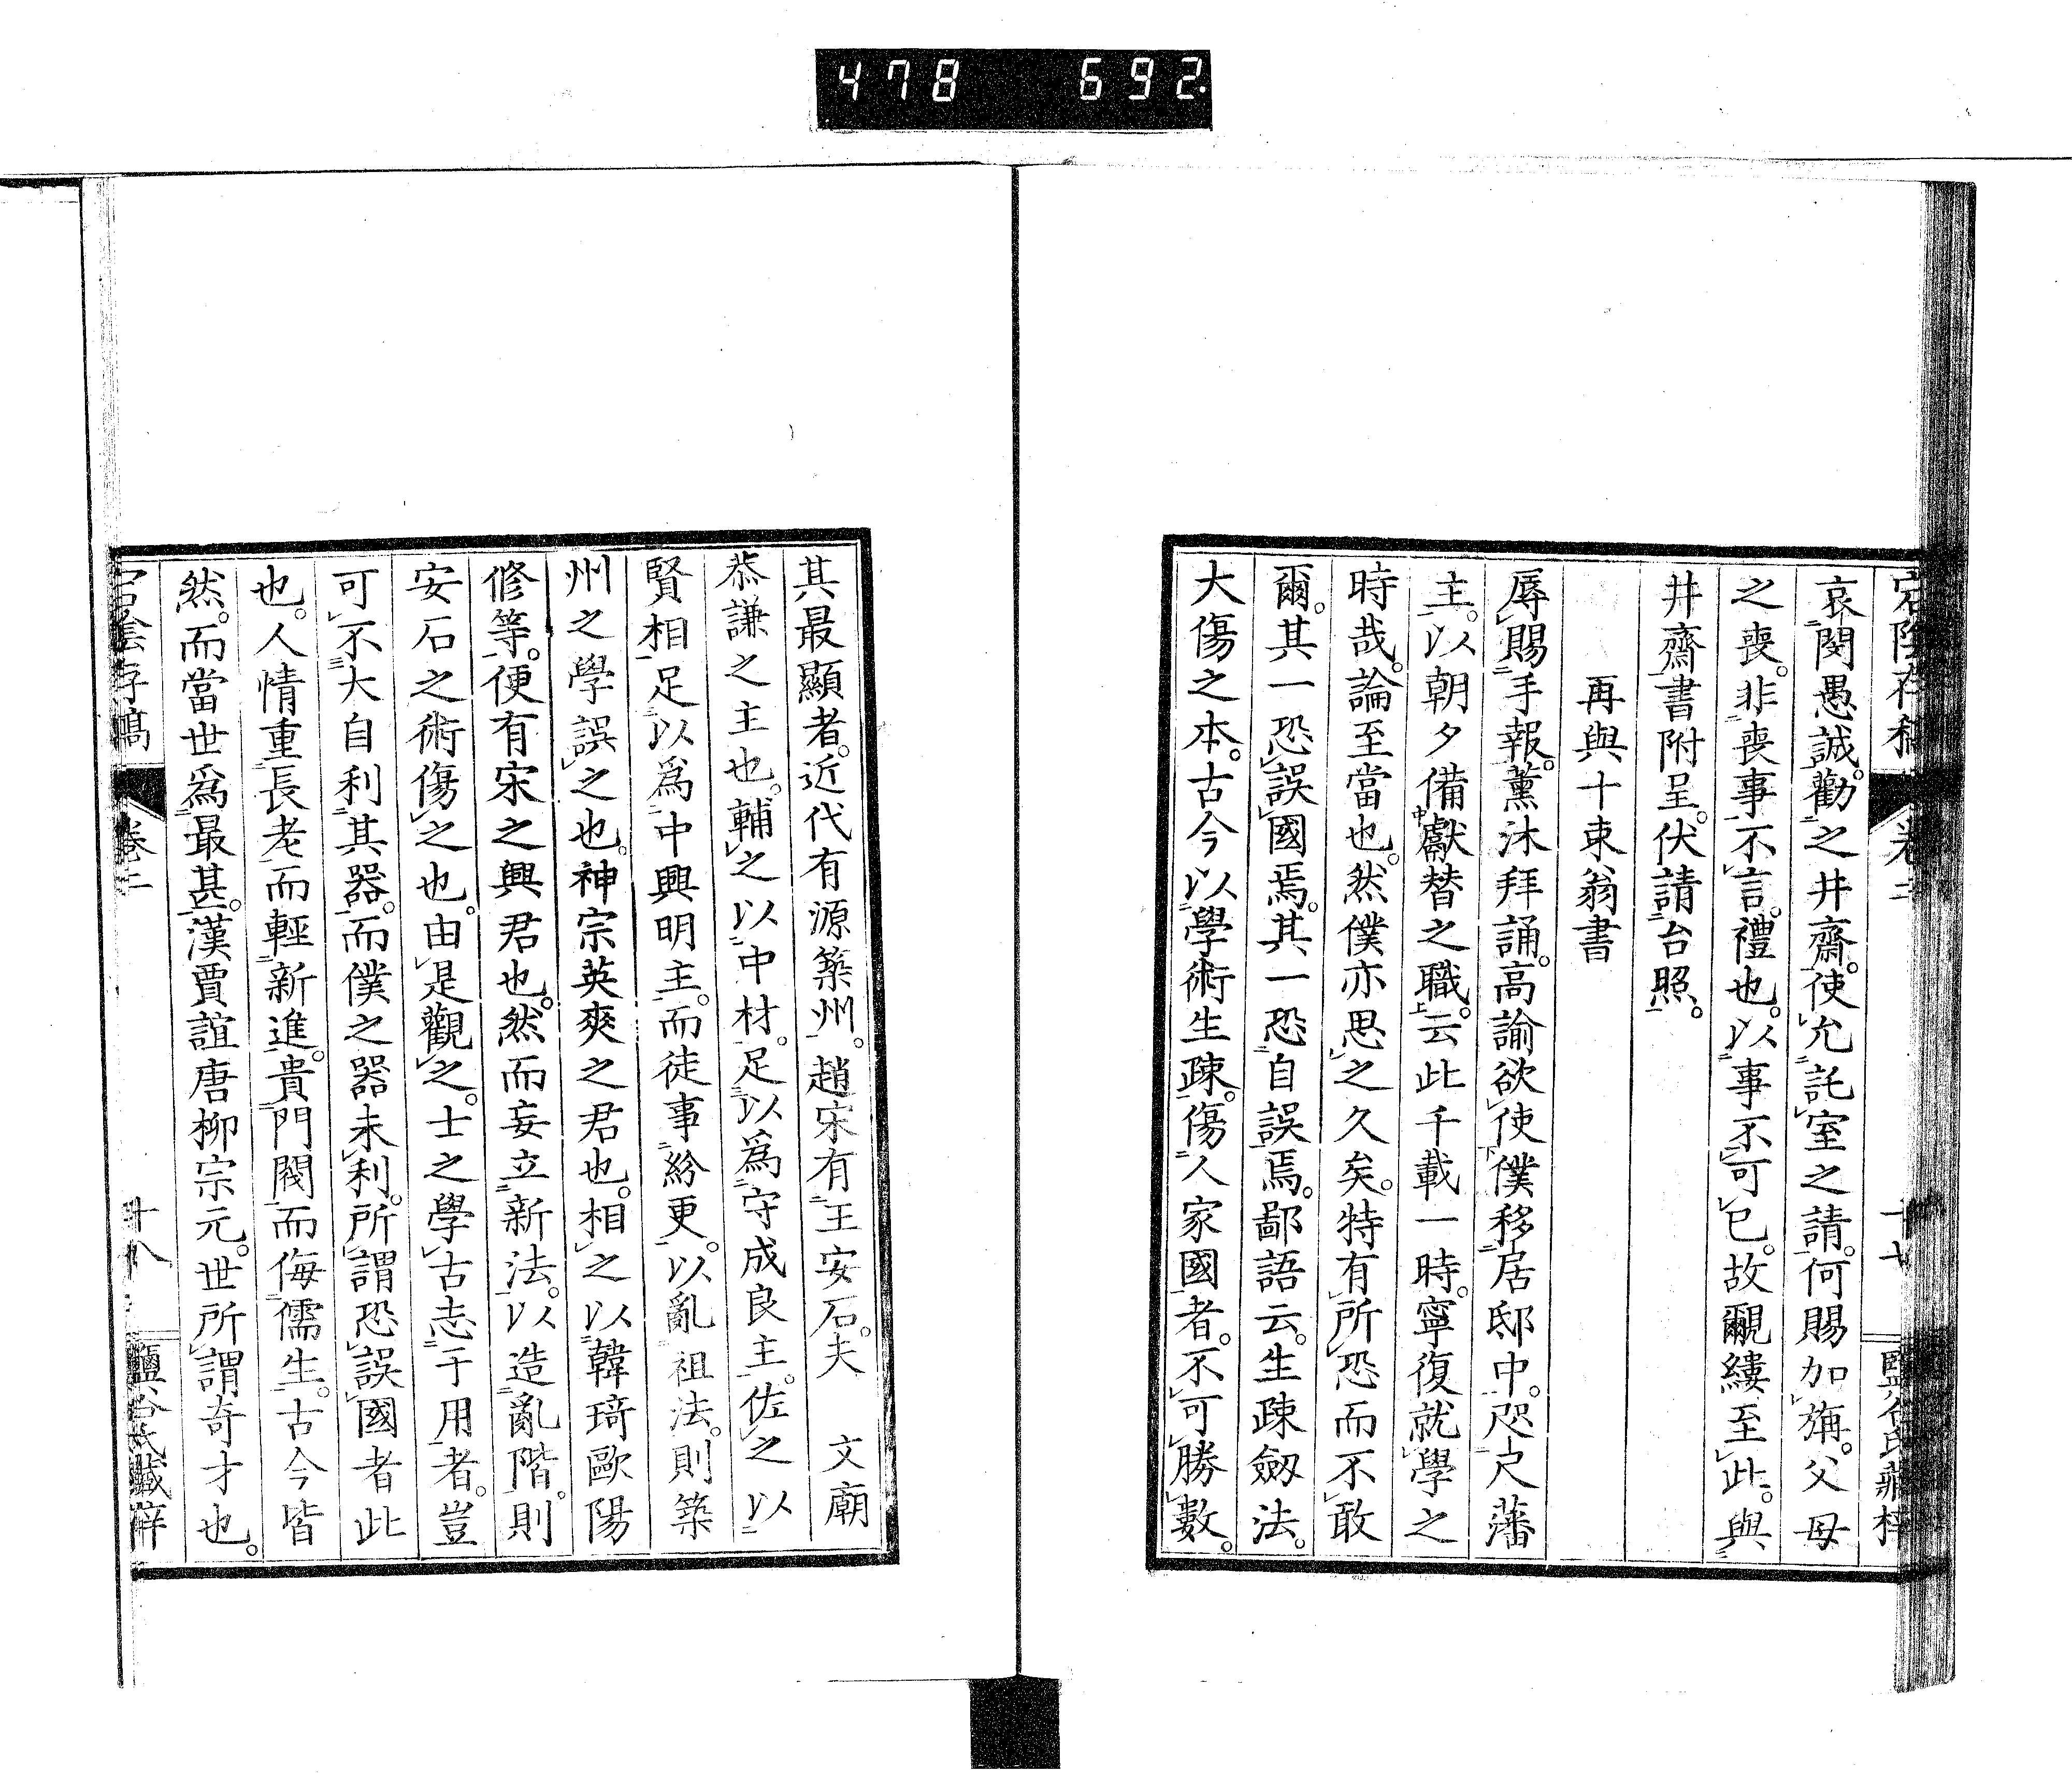 478 692.
宕陰存稿 卷二 十七 鹽谷氏藏梓
哀閔愚誠。勸之井齋。使允託室之請。何賜加旃。父母
之喪。非喪事不言。禮也。以事不可已。故覼縷至此。與
井齋書附呈。伏請台照。
再與十束翁書
辱賜手報。薰沐拜誦。高諭欲使僕移居邸中。咫尺藩
主。以朝夕備獻替之職。云此千載一時。寧復就學之
時哉。論至當也。然僕亦思之久矣。特有所恐而不敢
爾。其一恐誤國焉。其一恐自誤焉。鄙語云。生疎劔法。
大傷之本。古今以學術生疎。傷人家國者。不可勝數。
其最顯者。近代有源築州。趙宋有王安石。夫 文廟
恭謙之主也。輔之以中材。足以爲守成良主。佐之以
賢相足以爲中興明主。而徒事紛更。以亂祖法。則築
州之學誤之也。神宗英爽之君也。相之以韓琦歐陽
修等。便有宋之興君也。然而妄立新法。以造亂階。則
安石之術傷之也。由是觀之。士之學古志于用者。豈
可不大自利其器。而僕之器未利。所謂恐誤國者此
也。人情重長老而輕新進。貴門閥而侮儒生。古今皆
然。而當世爲最甚。漢賈誼唐柳宗元。世所謂奇才也。
宕陰存稿 卷二 十八 鹽谷氏藏梓